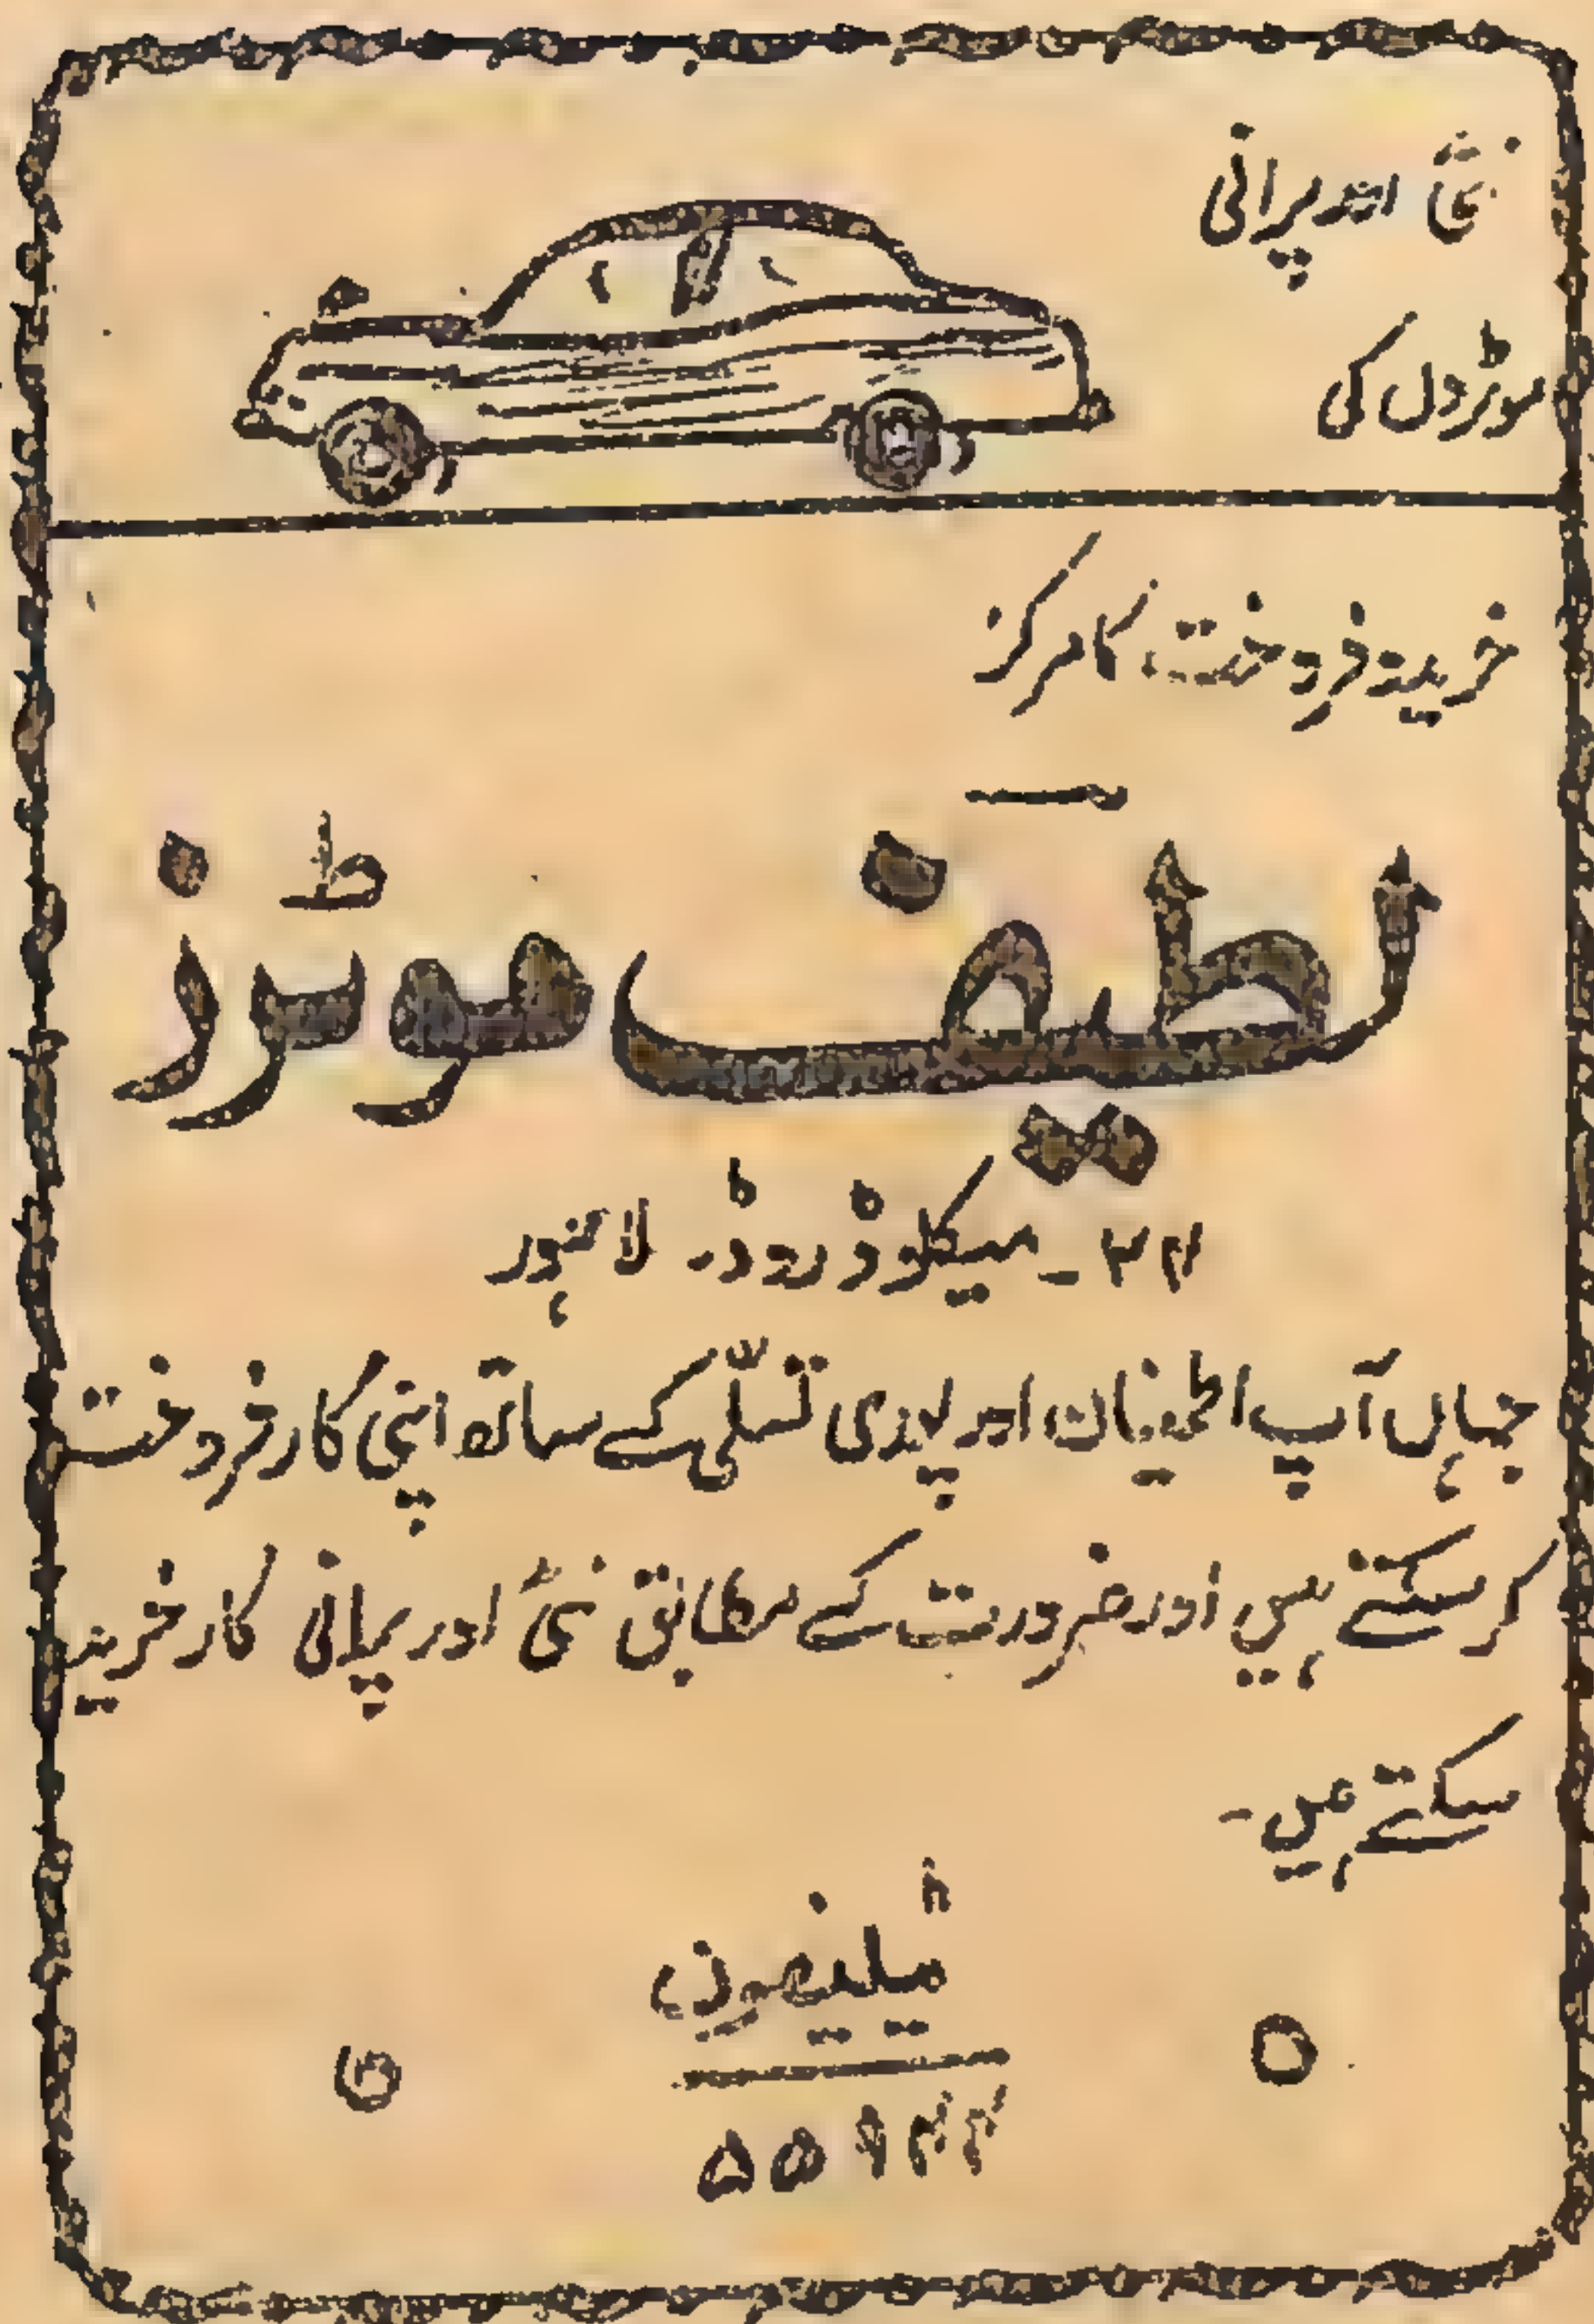 نئی اور پرانی
موٹروں کی
خرید و فروخت کا مرکز
لطیف موٹرز
میکلوڈ روڈ۔ لاہور
جہاں آپ اطمینان اور پوری تسلّی کے ساتھ اپنی کار فروخت
کر سکتے ہیں اور ضرورت کے مطابق نئی اور پرانی کار خرید
سکتے ہیں۔
ٹیلیفون